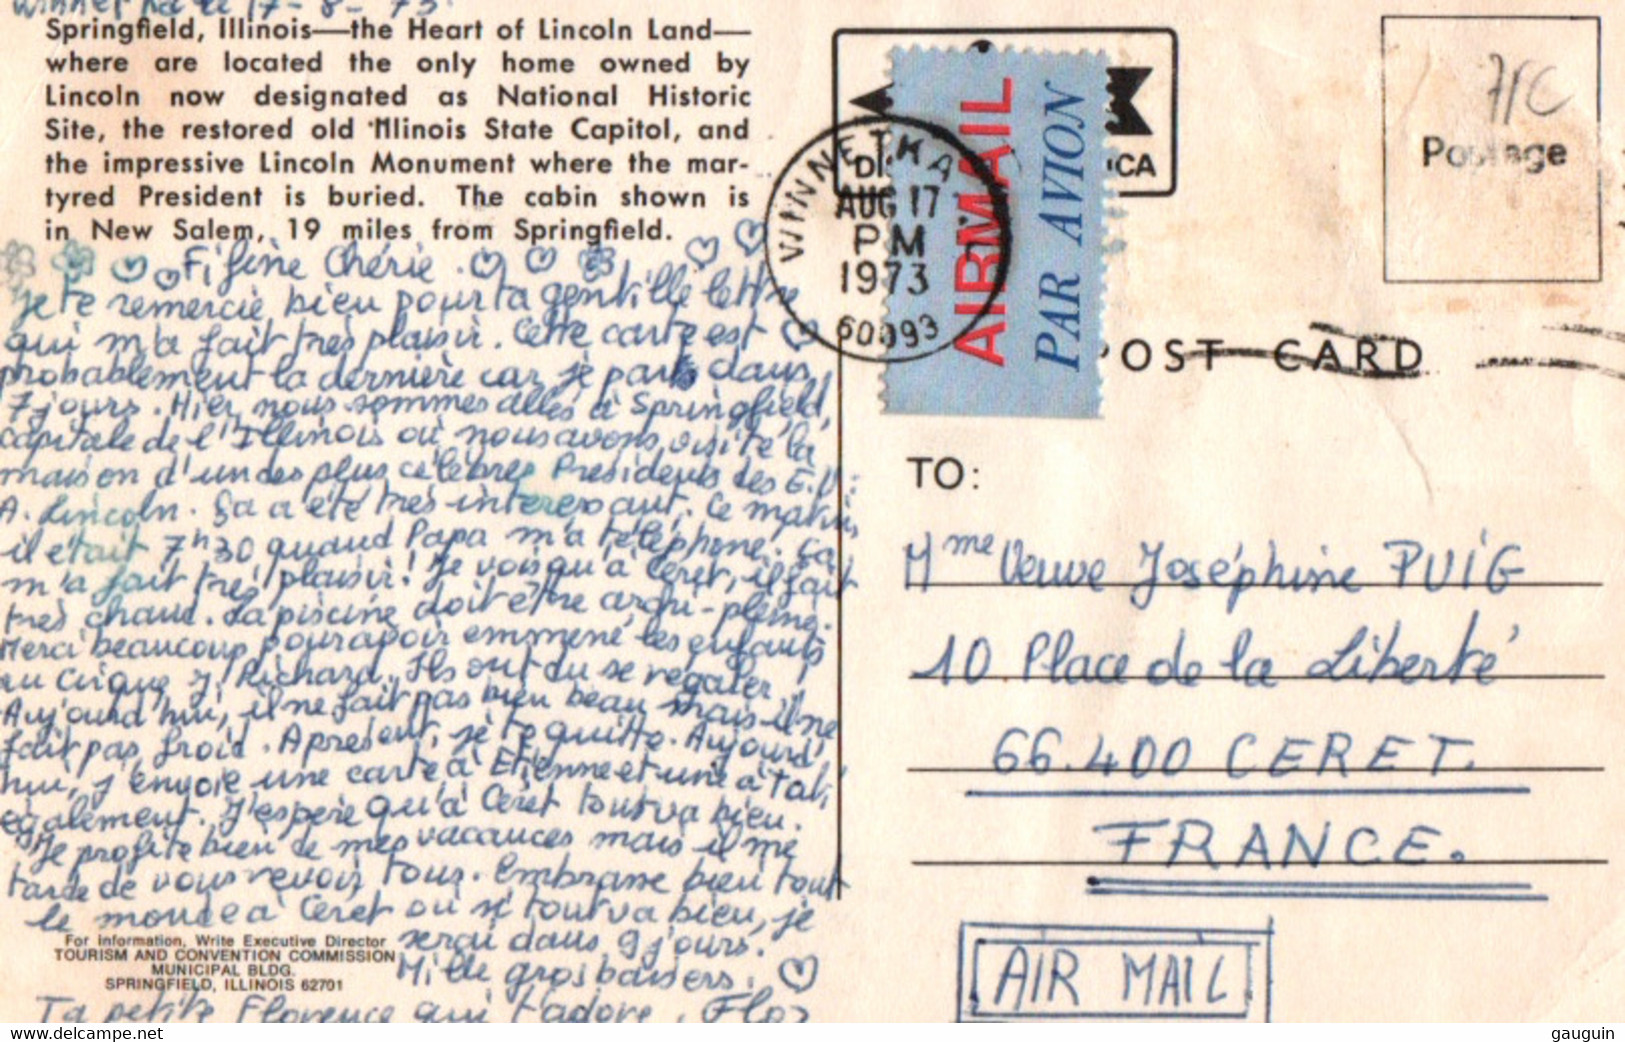 Winnetka le 17-8-73.
Springfield, Illinois—the Heart of Lincoln Land—
where are located the only home owned by
Lincoln now designated as National Historic
Site, the restored old Illinois State Capitol, and
the impressive Lincoln Monument where the mar-
tyred President is buried. The cabin shown is
in New Salem, 19 miles from Springfield.
Fifine Chérie.
Je te remercie bien pour ta gentille lettre
qui m'a fait très plaisir. Cette carte est
probablement la dernière car je pars dans
7 jours. Hier, nous sommes allés à Springfield,
capitale de l'Illinois où nous avons visité la
maison d'un des plus célèbres Présidents des E.U:
A. Lincoln. Ça a été très intéressant. Ce matin
il était 7h30 quand Papa m'a téléphoné. Ça
m'a fait très plaisir! Je vois qu'à Céret, il fait
très chaud. La piscine doit être archi-pleine.
Merci beaucoup pour avoir emmené les enfants
au Cirque J. Richard. Ils ont du se régaler.
Aujourd'hui, il ne fait pas bien beau mais il ne
fait pas froid. A présent, je te quitte. Aujourd'
hui, j'envoie une carte à Etienne et une à Tati,
également. J'espère qu'à Céret tout va bien.
Je profite bien de mes vacances mais il me
tarde de vous revoir tous. Embrasse bien tout
le monde à Céret où si tout va bien, je
serai dans 9 jours.
Mille gros baisers.
Ta petite Florence qui t'adore. Flo
For Information, Write Executive Director
TOURISM AND CONVENTION COMMISSION
MUNICIPAL BLDG.
SPRINGFIELD, ILLINOIS 62701
WINNETKA
AUG 17
PM
1973
60093
AIRMAIL
PAR AVION
Postage
POST CARD
TO:
Mme Veuve Joséphine PUIG
10 Place de la Liberté
66.400 CERET.
FRANCE.
AIR MAIL
delcampe.net
gauguin